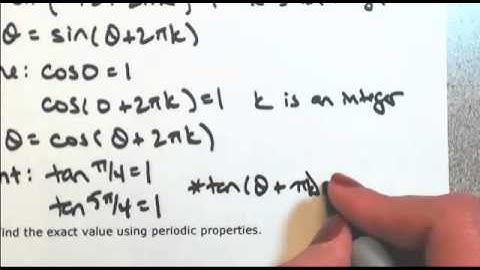 θ = sin(θ+2πk)
ne: cos0=1
cos(0+2πk)=1 k is an integer
θ = cos(θ+2πk)
nt: tan π/4=1
*tan(θ+πk)
tan 5π/4=1
find the exact value using periodic properties.